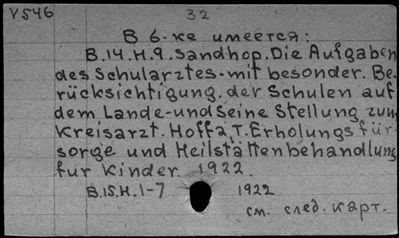 V546 32
В 6-ке имеется:
B.14.H.9. Sandhop. Die Aufgaben
des Schularztes-mit besonder. Be-
rücksichtigung. der Schulen auf
dem Lande-und Seine Stellung zum
Kreisarzt. Hoffa, T. Erholungs für
sorge und Heilstättenbehandlung
fur Kinder. 1922.
B.15.H.1-7 1922
см. след. карт.